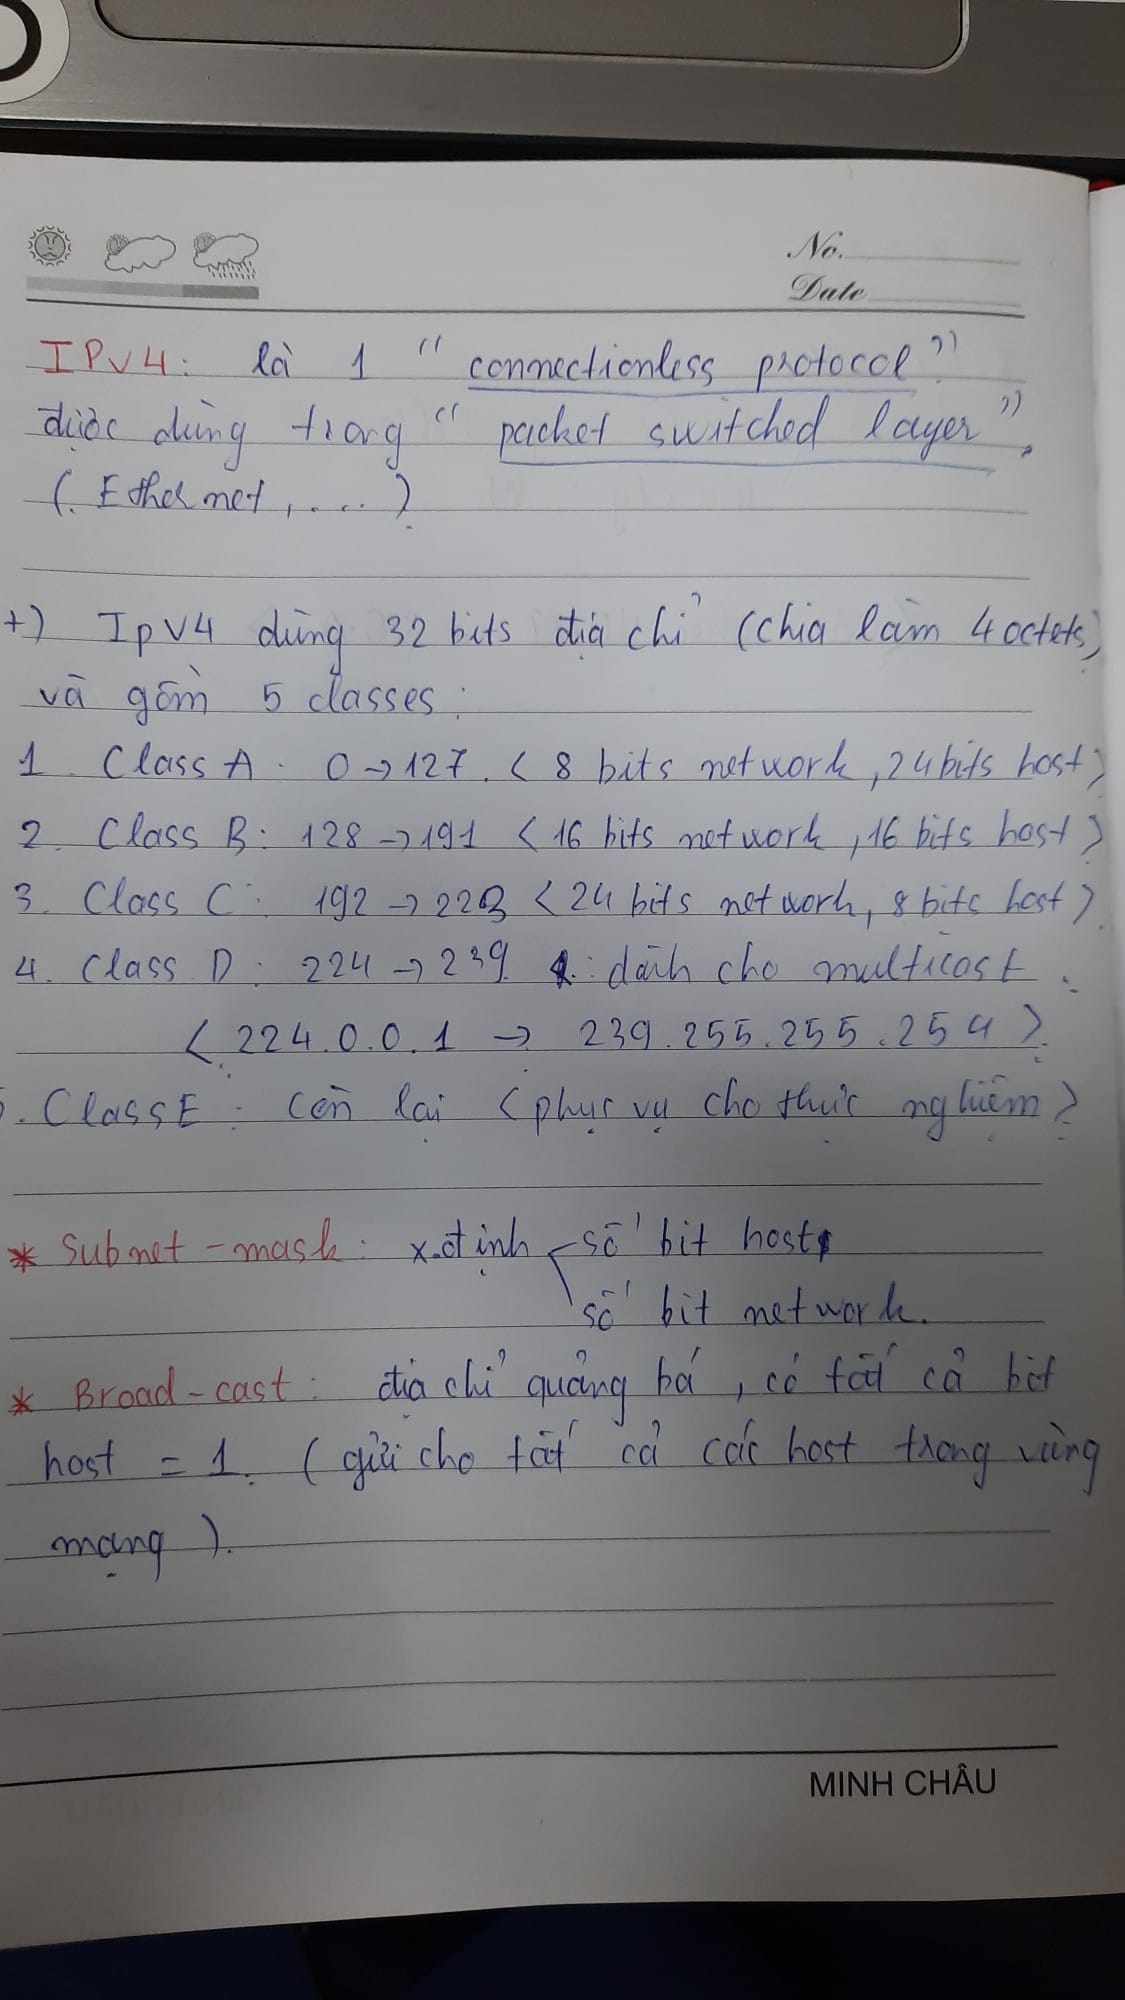 No.
Date
IPv4: là 1 " connectionless protocol"
được dùng trong " packet switched layer",
( Ethernet, .... )
+) IpV4 dùng 32 bits địa chỉ (chia làm 4 octets)
và gồm 5 classes:
1. Class A: 0 → 127. < 8 bits network, 24 bits host>
2. Class B: 128 → 191 < 16 bits network, 16 bits host >
3. Class C: 192 → 223 < 24 bits network, 8 bits host >
4. Class D: 224 → 239 : dành cho multicast.
< 224.0.0.1 → 239.255.255.254 >.
5. Class E: còn lại < phục vụ cho thực nghiệm >
* Subnet-mask: x.định số bit host
số bit network.
* Broad-cast: địa chỉ quảng bá, có tất cả bit
host = 1. ( gửi cho tất cả các host trong vùng
mạng ).
MINH CHÂU